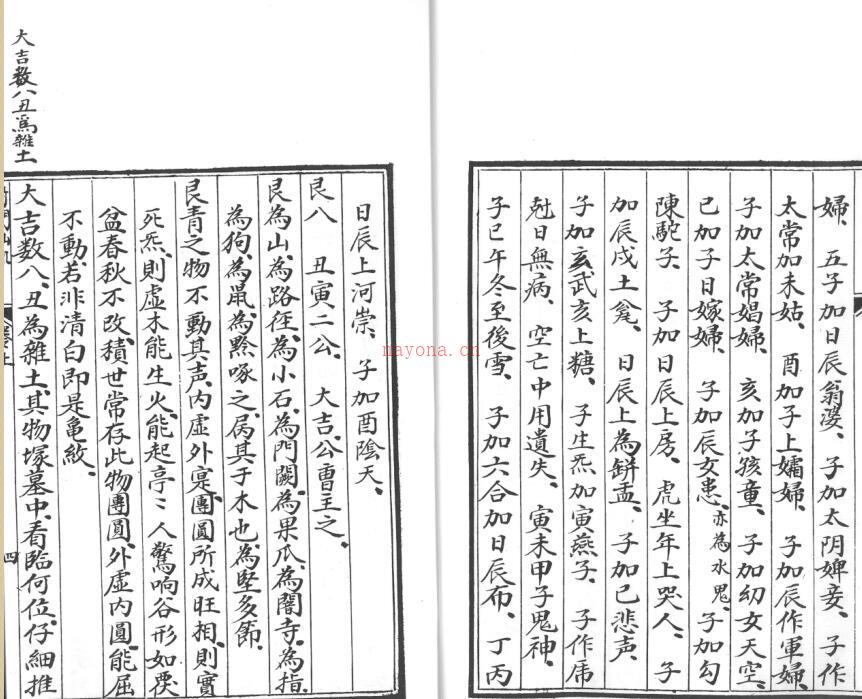 婦、五子加日辰翁婆、子加太阴婢妾、子作
太常加未姑、酉加子上孀婦、子加辰作軍婦、
子加太常娼婦、亥加子孩童、子加幼女天空、
巳加子日嫁婦、子加辰女患、亦為水鬼、子加勾
陳駝子、子加日辰上房、虎坐年上哭人、子
加辰戌土瓮、日辰上為缾盂、子加巳悲声、
子加亥武亥上糖、子生炁加寅燕子、子作虎
尅日無病、空亡中用遺失、寅未甲子鬼神、
子巳午冬至後雪、子加六合加日辰布、丁丙
日辰上河崇、子加酉陰天、
艮八 丑寅二公、大吉、公曹主之、
艮為山、為路徑、為小石、為門闕、為果瓜、為閽寺、為指、
為狗、為鼠、為黔啄之、属其于木也、為堅多節、
艮青之物不動其声、内虚外寔、團圓所成旺相、則實
死炁、則虚木能生火、能起亭〻人驚响谷形如覆
盆春秋不改、積世常存此物團圓、外虚内圓、能屈
不動、若非清白即是亀紋、
大吉数八、丑為雜土、其物塚墓中、看臨何位、仔細推
四
大吉数八丑為雜土
nayona.cn